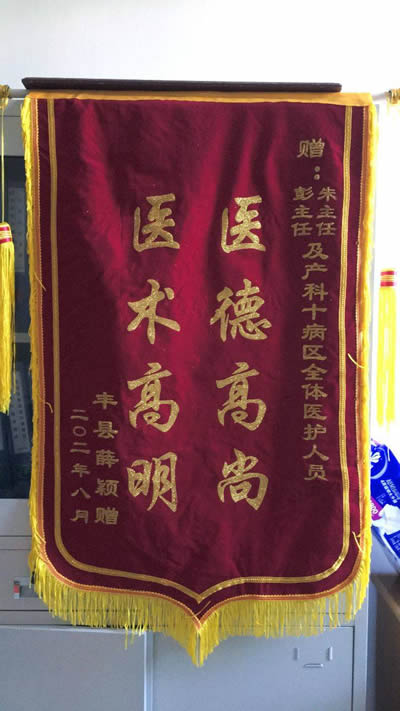 赠：朱主任彭主任及产科十病区全体医护人员
医德高尚
医术高明
丰县薛颖赠
二〇二一年八月